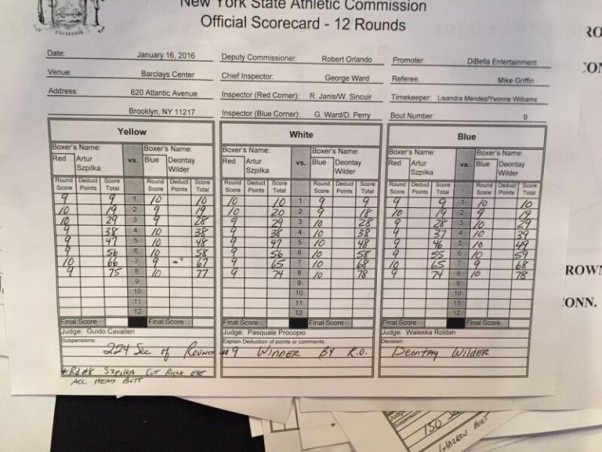 New York State Athletic Commission
Official Scorecard - 12 Rounds
Date: January 16, 2016 Deputy Commissioner: Robert Orlando Promoter: DiBella Entertainment
Venue: Barclays Center Chief Inspector: George Ward Referee: Mike Griffin
Address: 620 Atlantic Avenue Inspector (Red Corner): R. Janis/W. Sincuir Timekeeper: Lisandra Mendez/Yvonne Williams
Brooklyn, NY 11217 Inspector (Blue Corner): G. Ward/D. Perry Bout Number: 9
Yellow White Blue
Boxer's Name: Boxer's Name: Boxer's Name: Boxer's Name: Boxer's Name: Boxer's Name:
Red Artur Szpilka vs. Blue Deontay Wilder Red Artur Szpilka vs. Blue Deontay Wilder Red Artur Szpilka vs. Blue Deontay Wilder
Round Score Deduct Points Score Total Round Score Deduct Points Score Total Round Score Deduct Points Score Total Round Score Deduct Points Score Total Round Score Deduct Points Score Total Round Score Deduct Points Score Total
9 9 1 10 10 10 10 1 9 9 9 9 1 10 10
10 19 2 9 19 10 20 2 9 18 10 19 2 9 19
10 29 3 9 28 9 29 3 10 28 9 28 3 10 29
9 38 4 10 38 9 38 4 10 38 9 37 4 10 39
9 47 5 10 48 9 47 5 10 48 9 46 5 10 49
9 56 6 10 58 9 56 6 10 58 9 55 6 10 59
10 66 7 9 67 9 65 7 10 68 10 65 7 9 68
9 75 8 10 77 9 74 8 10 78 9 74 8 10 78
9 9 9
10 10 10
11 11 11
12 12 12
Final Score Final Score Final Score Final Score Final Score Final Score
Judge: Guido Cavalleri Judge: Pasquale Procopio Judge: Waleska Roldan
Suspensions: Explain Deduction of points or comments: Decision
224 Sec of Round #9 Winner By K.O. Deontay Wilder
Szpilka Cut Right Eye
Acc Head Butt
ROWN
ONN.
150